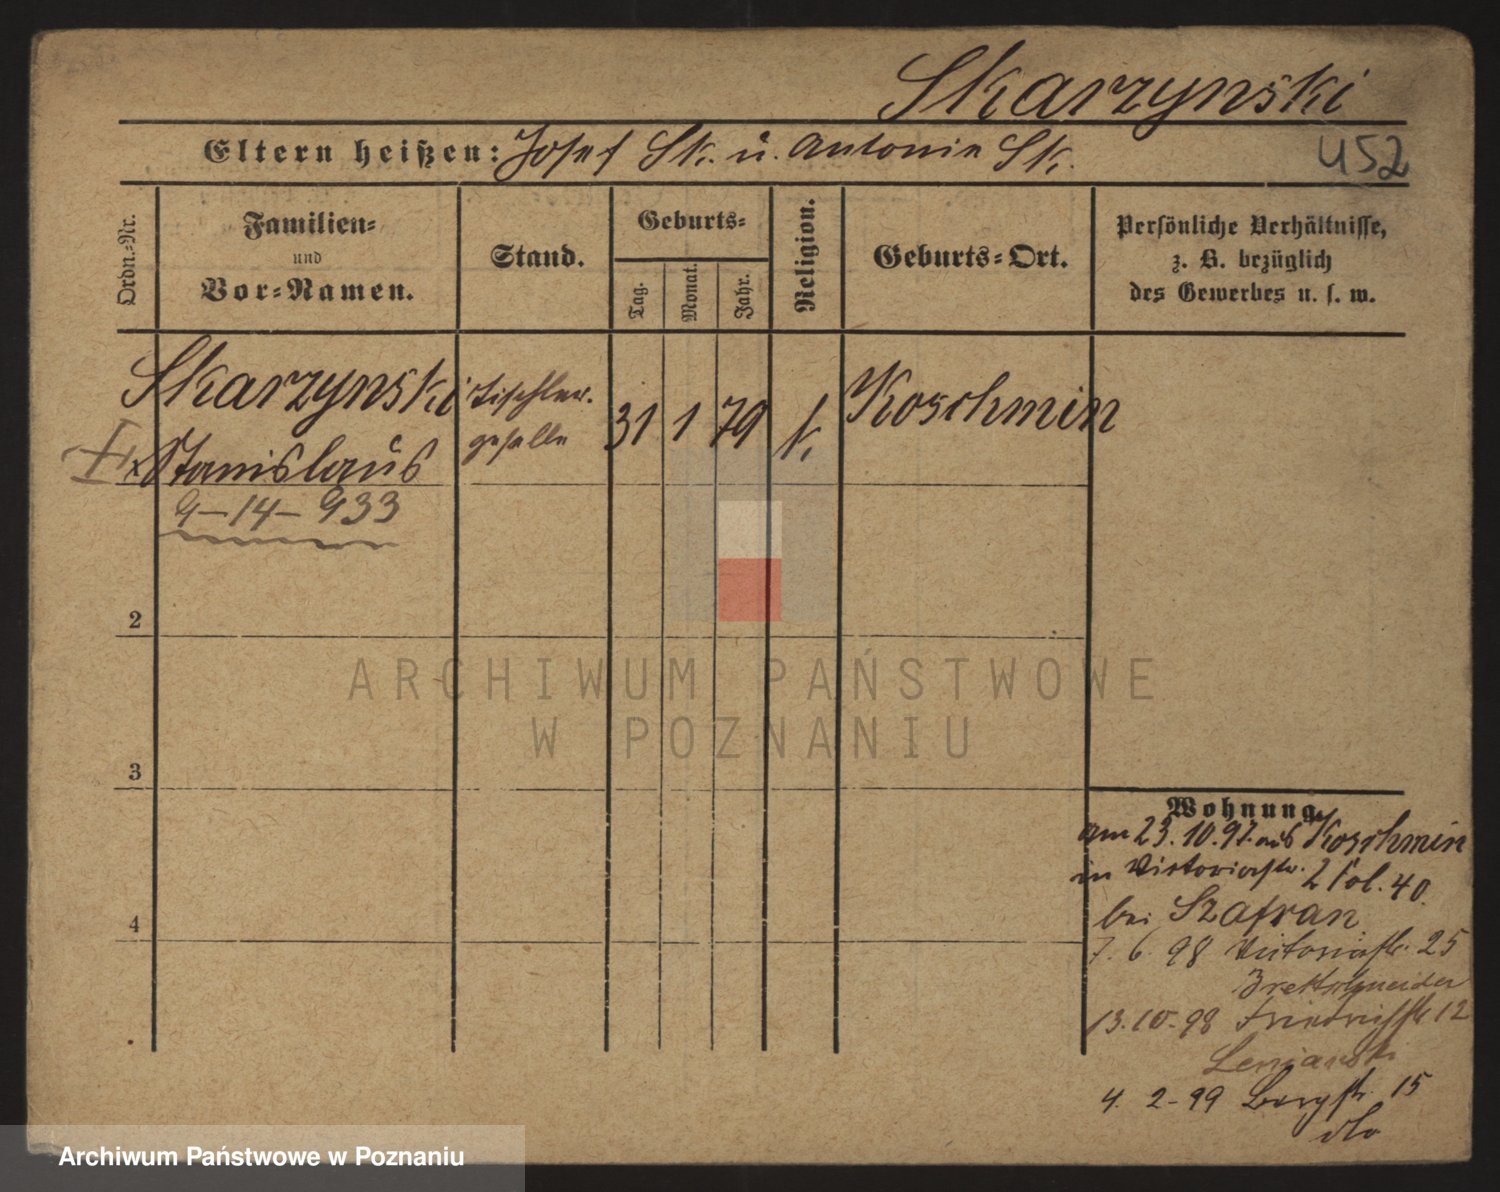 Skarzynski
Eltern heißen: Josef Sk. u. Antonie Sk.
452
Ordn.=Nr.
Familien=
und
Vor=Namen.
Stand.
Geburts=
Tag.
Monat.
Jahr.
Religion.
Geburts=Ort.
Persönliche Verhältnisse,
z. B. bezüglich
des Gewerbes u. s. w.
Skarzynski
Stanislaus
9-14-933
Tischler.
geselle
31
1
79
k.
Koschmin
2
3
4
Wohnung.
am 23.10.97. aus Koschmin
in Victoriastr. 2 Pol. 40.
bei Szafran
7. 6. 98 Victoriastr. 25
Brettschneider
13.10.98 Friedrichstr 12
4. 2-99 Bergstr. 15
dto
ARCHIWUM PAŃSTWOWE
W POZNANIU
Archiwum Państwowe w Poznaniu